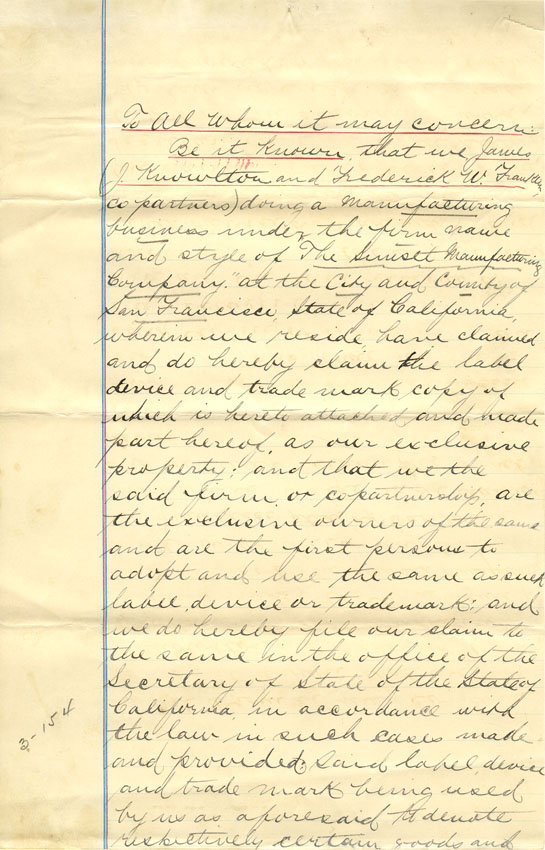 To All Whom it may concern:
Be it Known, that we James
(J. Knowlton and Frederick W. 
co partners) doing a manufacturing
business under the firm name
and style of "The Sunset Manufacturing
Company." at the City and County of
San Francisco, State of California,
wherein we reside, have claimed
and do hereby claim the label
device and trade mark copy of
which is hereto attached, and made
part hereof, as our exclusive
property; and that we the
said firm or copartnership, are
the exclusive owners of the same
and are the first persons to
adopt and use the same as such
label, device or trademark; and
we do hereby file our claim to
the same in the office of the
Secretary of State of the State of
California, in accordance with
the law in such cases made
and provided; Said label, device
and trade mark being used
by us as aforesaid to denote
respectively certain goods and
3-154